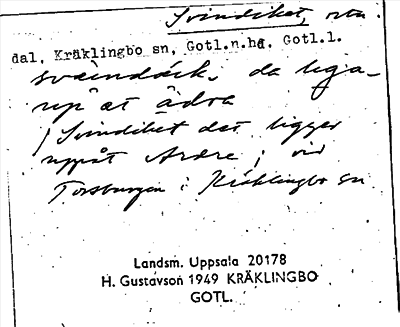 Svindiket, 
dal, Kräklingbo sn, Gotl.n.hd. Gotl.l.
da liga
up at ädra
/ Svindiket det ligger
uppåt Ardre; vid
Torsburgen i Kräklingbo sn
Landsm. Uppsala 20178
H. Gustavson 1949 KRÄKLINGBO
GOTL.